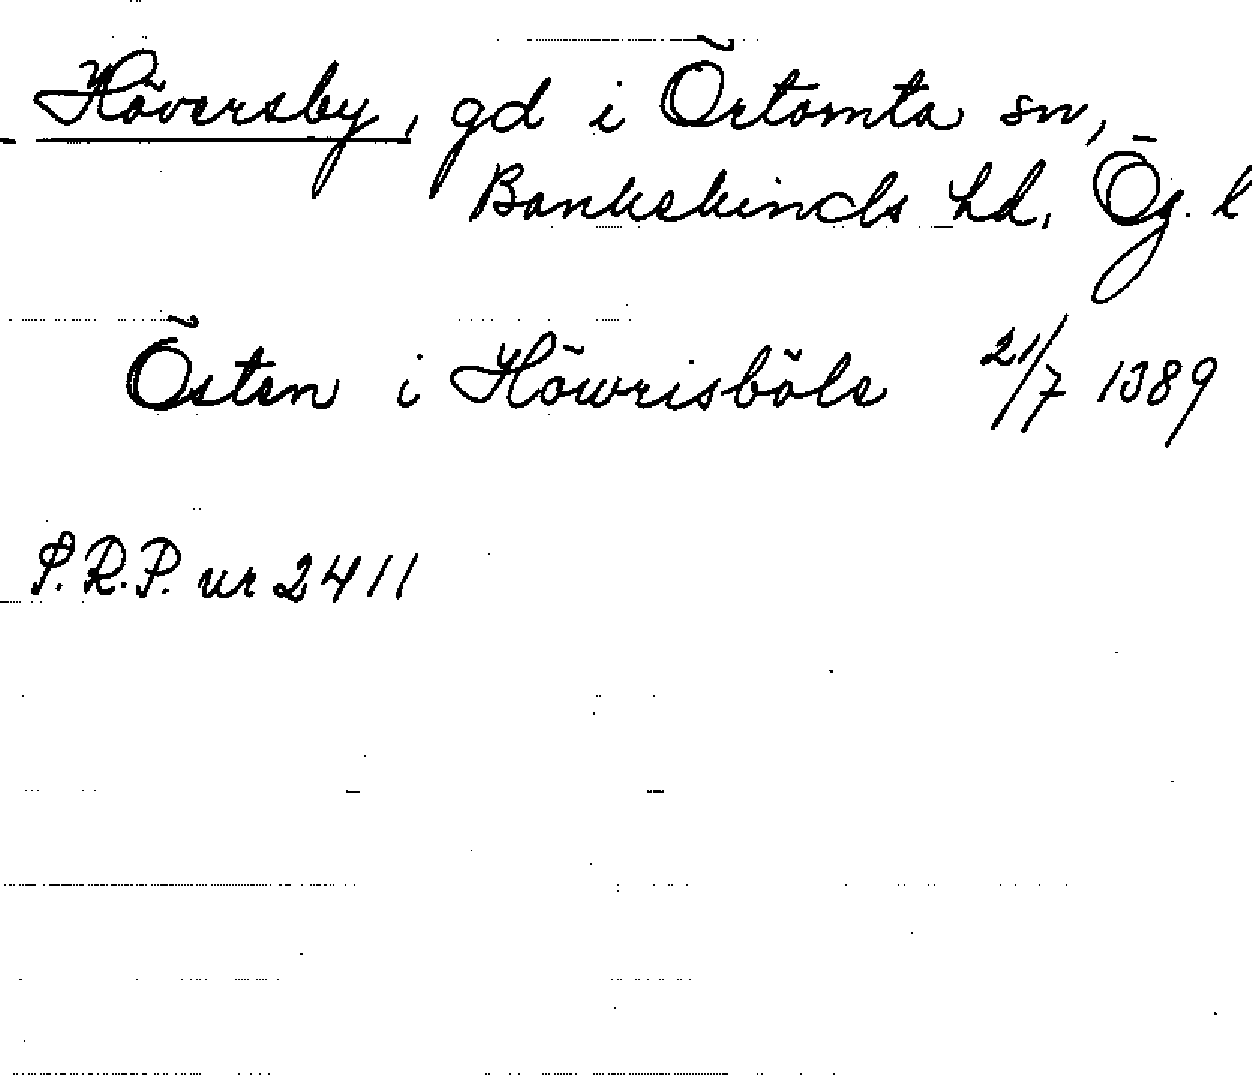 Höversby, gd i Örtomta sn,
Bankekinds hd, Ög. l
Östen i Höwrisböle 21/7 1389
P.R.P. nr 2411